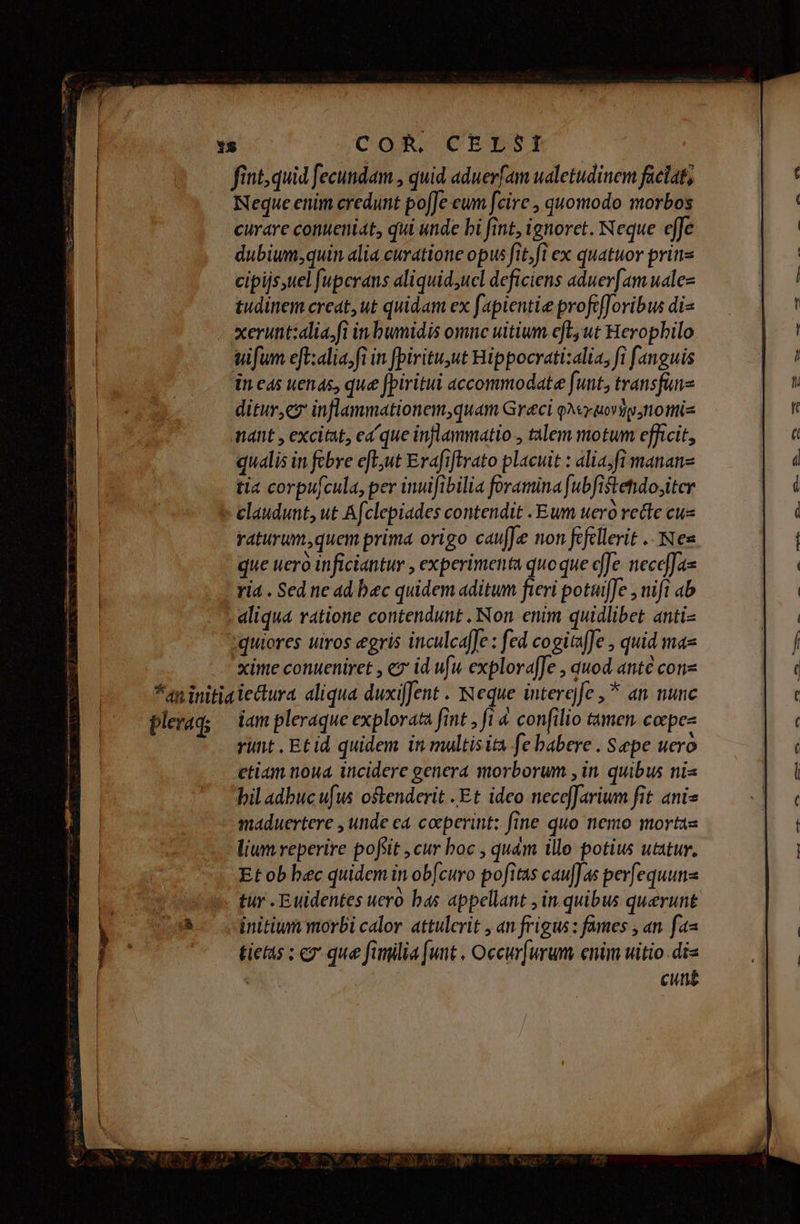 18 COR. CELSI
sint,quid secundam, quid aduersam ualetudinem faciat,
Neque enim credunt posse eum scire, quomodo morbos
curare conueniat, qui unde hi sint, ignoret. Neque esse
dubium,quin alia curatione opus sit,si ex quatuor prin=
cipijs,uel superans aliquid,uel deficiens aduersam uale=
tudinem creat, ut quidam ex sapientiæ professoribus di=
xerunt:alia,si in humidis omne uitium est, ut Herophilo
uisum est:alia,si in spiritu,ut Hippocrati:alia, si sanguis
in eas uenas, quæ spiritui accommodatæ sunt, transfun=
ditur,& inflammationem,quam Græci φλεγμονὴν,nomi=
nant, excitat, ea'que inflammatio, talem motum efficit,
qualis in febre est,ut Erasistrato placuit: alia,si manan=
tia corpuscula, per inuisibilia foramina subsistendo,iter
claudunt, ut Asclepiades contendit. Eum uerò recte cu=
raturum,quem prima origo caussæ non fefellerit. Ne=
que uerò inficiantur, experimenta quoque esse necessa=
ria. Sed ne ad hæc quidem aditum fieri potuisse, nisi ab
aliqua ratione contendunt. Non enim quidlibet anti=
quiores uiros ægris inculcasse: sed cogitasse, quid ma=
xime conueniret, & id usu explorasse, quod antè con=
*an initia iectura aliqua duxissent. Neque interesse, * an nunc
pleraq; iam pleraque explorata sint, si à consilio tamen cœpe=
runt. Et id quidem in multis ita se habere. Sæpe uerò
etiam noua incidere genera morborum, in quibus ni=
hil adhuc usus ostenderit. Et ideo necessarium sit ani=
maduertere, unde ea cœperint: sine quo nemo morta=
lium reperire possit, cur hoc, quàm illo potius utatur.
Et ob hæc quidem in obscuro positas caussas persequun=
tur. Euidentes uerò has appellant, in quibus quærunt
initium morbi calor attulerit, an frigus: fames, an sa=
tietas: & quæ similia sunt. Occursurum enim uitio di=
cunt